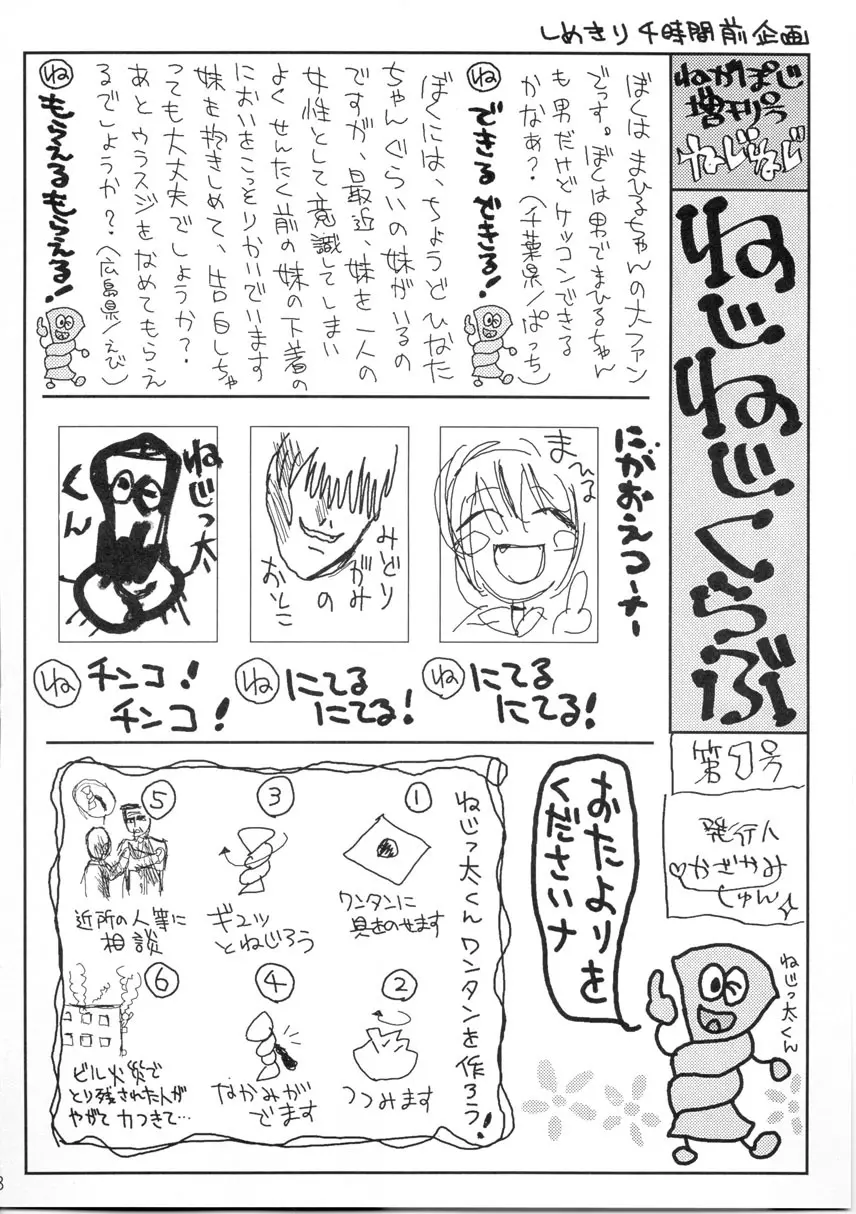 しめきり4時間前企画
ねがぽじ
増刊号
ねじねじ
ねじねじくらぶ
第1号
発行人
かざかみ
しゅん
ぼくはまひるちゃんの大ファン
でっす。ぼくは男でまひるちゃん
も男だけどケッコンできる
かなぁ?(千葉県/ぱっち)
ね できるできる!
ぼくには、ちょうどひなた
ちゃんぐらいの妹がいるの
ですが、最近、妹を一人の
女性として意識してしまい
よくせんたく前の妹の下着の
においをこっそりかいでいます
妹を抱きしめて、告白しちゃ
っても大丈夫でしょうか?
あとウラスジをなめてもらえ
るでしょうか?(広島県/えび)
ね もらえるもらえる!
にがおえコーナー
まひる
ね にてる
にてる!
みどり
がみ
の
おとこ
ね にてる
にてる!
ねじっ太
くん
ね チンコ!
チンコ!
おたよりを
くださいナ
ねじっ太くん
ねじっ太くんワンタンを作ろう!
①
ワンタンに
具をのせます
②
つつみます
③
ギュッ
とねじろう
④
なかみが
でます
⑤
近所の人等に
相談
⑥
ビル火災で
とり残された人が
やがて力つきて…